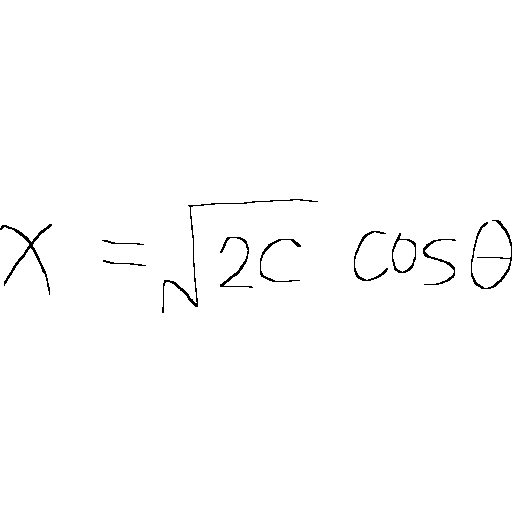 x = √2c cosθ